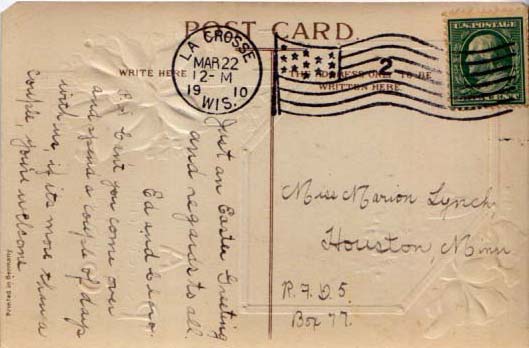 POST CARD.
WRITE HERE
THE ADDRESS ONLY TO BE
WRITTEN HERE.
LA CROSSE
MAR 22
12-M
1910
WIS.
2
U.S. POSTAGE
Just an Easter Greeting
and regards to all.
Ed and
P.S. Can't you come over
and spend a couple of days
with us if its more than a
couple, you're welcome
Miss Marion Lynch,
Houston, Minn
R.F.D. 5.
Box 77.
Printed in Germany